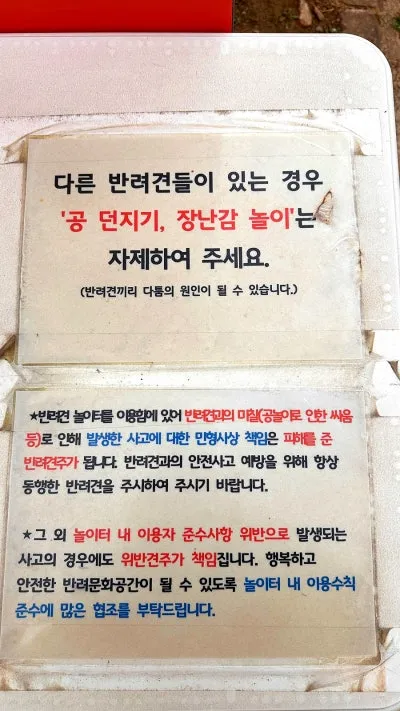 다른 반려견들이 있는 경우
'공 던지기, 장난감 놀이'는
자제하여 주세요.
(반려견끼리 다툼의 원인이 될 수 있습니다.)
★반려견 놀이터를 이용함에 있어 반려견과의 마찰(공놀이로 인한 싸움
등)로 인해 발생한 사고에 대한 민형사상 책임은 피해를 준
반려견주가 됩니다. 반려견과의 안전사고 예방을 위해 항상
동행한 반려견을 주시하여 주시기 바랍니다.
★그 외 놀이터 내 이용자 준수사항 위반으로 발생되는
사고의 경우에도 위반견주가 책임집니다. 행복하고
안전한 반려문화공간이 될 수 있도록 놀이터 내 이용수칙
준수에 많은 협조를 부탁드립니다.